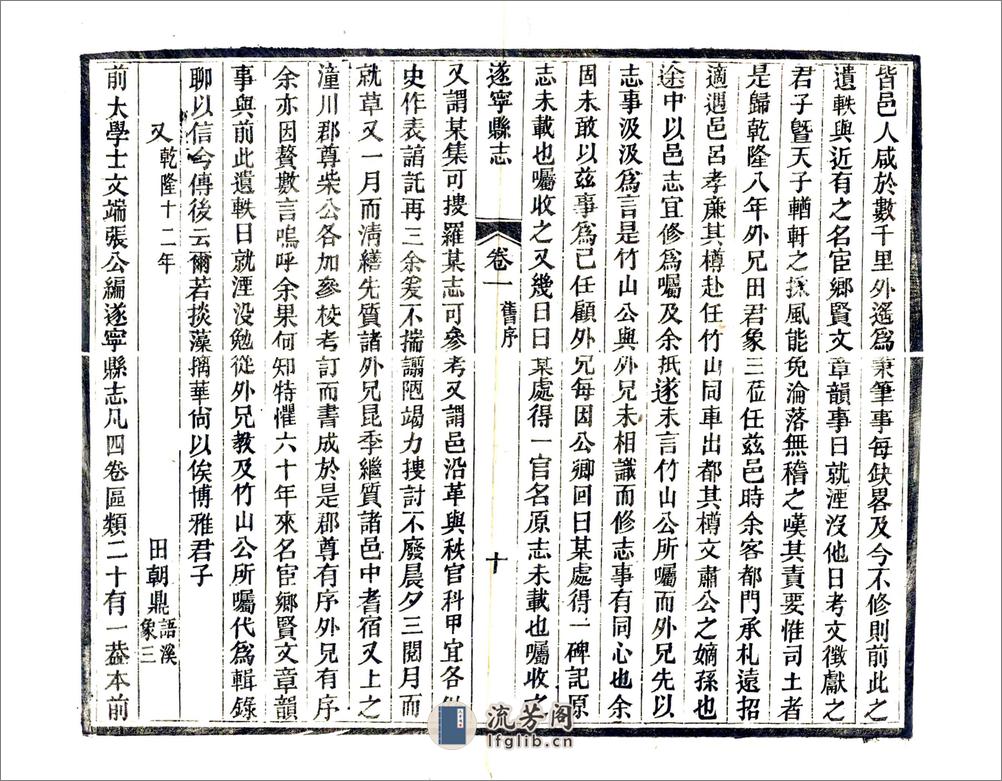 皆邑人咸於數千里外遙爲秉筆事每缺畧及今不修則前此之
遺軼與近有之名宦鄉賢文章韻事日就湮沒他日考文徵獻之
君子暨天子輶軒之採風能免淪落無稽之嘆其責要惟司土者
是歸乾隆八年外兄田君象三蒞任兹邑時余客都門承札遠招
適遇邑呂孝廉其樽赴任竹山同車出都其樽文肅公之嫡孫也
途中以邑志宜修爲囑及余抵遂未言竹山公所囑而外兄先以
志事汲汲爲言是竹山公與外兄未相識而修志事有同心也余
固未敢以兹事爲己任顧外兄每因公鄉回日某處得一碑記原
志未載也囑收之又幾日曰某處得一官名原志未載也囑收之
遂寧縣志 卷一 舊序 十
又謂某集可搜羅某志可參考又謂邑沿革與秩官科甲宜各做
史作表諮託再三余爰不揣謭陋竭力搜討不廢晨夕三閱月而
就草又一月而清繕先質諸外兄昆季繼質諸邑中耆宿又上之
潼川郡尊柴公各加參校考訂而書成於是郡尊有序外兄有序
余亦因贅數言嗚呼余果何知特懼六十年來名宦鄉賢文章韻
事與前此遺軼日就湮没勉從外兄教及竹山公所囑代爲輯錄
聊以信今傳後云爾若掞藻摛華尚以俟博雅君子
又 乾隆十二年 田朝鼎 語溪 象三
前大學士文端張公編遂寧縣志凡四卷區類二十有一葢本前
流芳阁
lfglib.cn